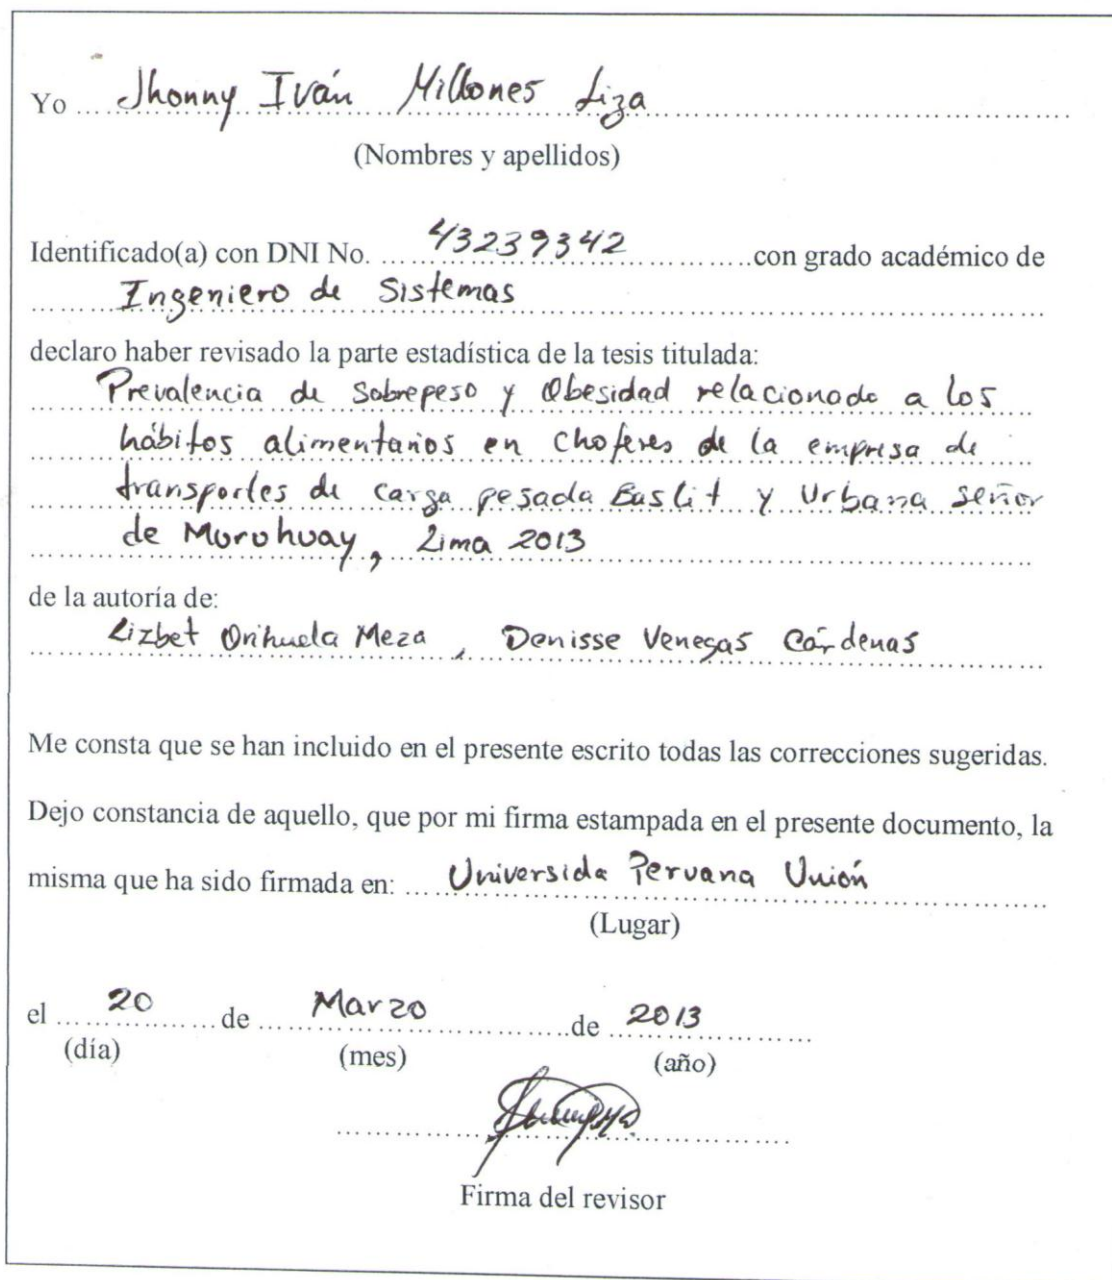 Yo Jhonny Iván Millones Liza
(Nombres y apellidos)
Identificado(a) con DNI No. 43239342 con grado académico de
Ingeniero de Sistemas
declaro haber revisado la parte estadística de la tesis titulada:
Prevalencia de Sobrepeso y Obesidad relacionado a los
hábitos alimentarios en choferes de la empresa de
transportes de carga pesada Baslit y Urbana Señor
de Muruhuay, Lima 2013
de la autoría de:
Lizbet Orihuela Meza, Denisse Venegas Cárdenas
Me consta que se han incluido en el presente escrito todas las correcciones sugeridas.
Dejo constancia de aquello, que por mi firma estampada en el presente documento, la
misma que ha sido firmada en: Universida Peruana Unión
(Lugar)
el 20 de Marzo de 2013
(día) (mes) (año)
Firma del revisor